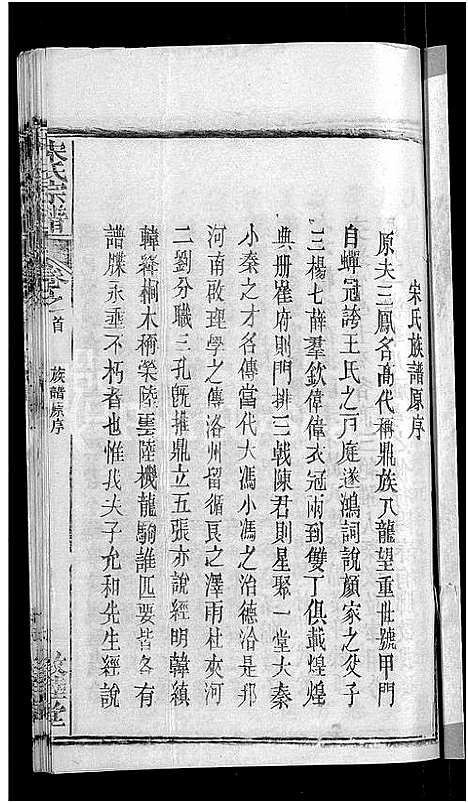 宋氏族譜原序
原夫三鳳名高代稱鼎族八龍望重世號甲門
自蟬冠誇王氏之戸庭遂鴻詞說顏家之父子
三楊七薛羣欽偉偉衣冠兩到雙丁俱載煌煌
典册崔府則門排三戟陳君則星聚一堂大秦
小秦之才名傳當代大馮小馮之治德洽是邦
河南啟理學之傳洛州留循良之澤雨杜夾河
二劉分職三孔旣推鼎立五張亦說經明韓縝
韓絳桐木稱榮陸雲陸機龍駒誰匹要皆各有
譜牒永垂不朽者也惟我夫子允和先生經說
宋氏宗譜
卷之首
族譜原序